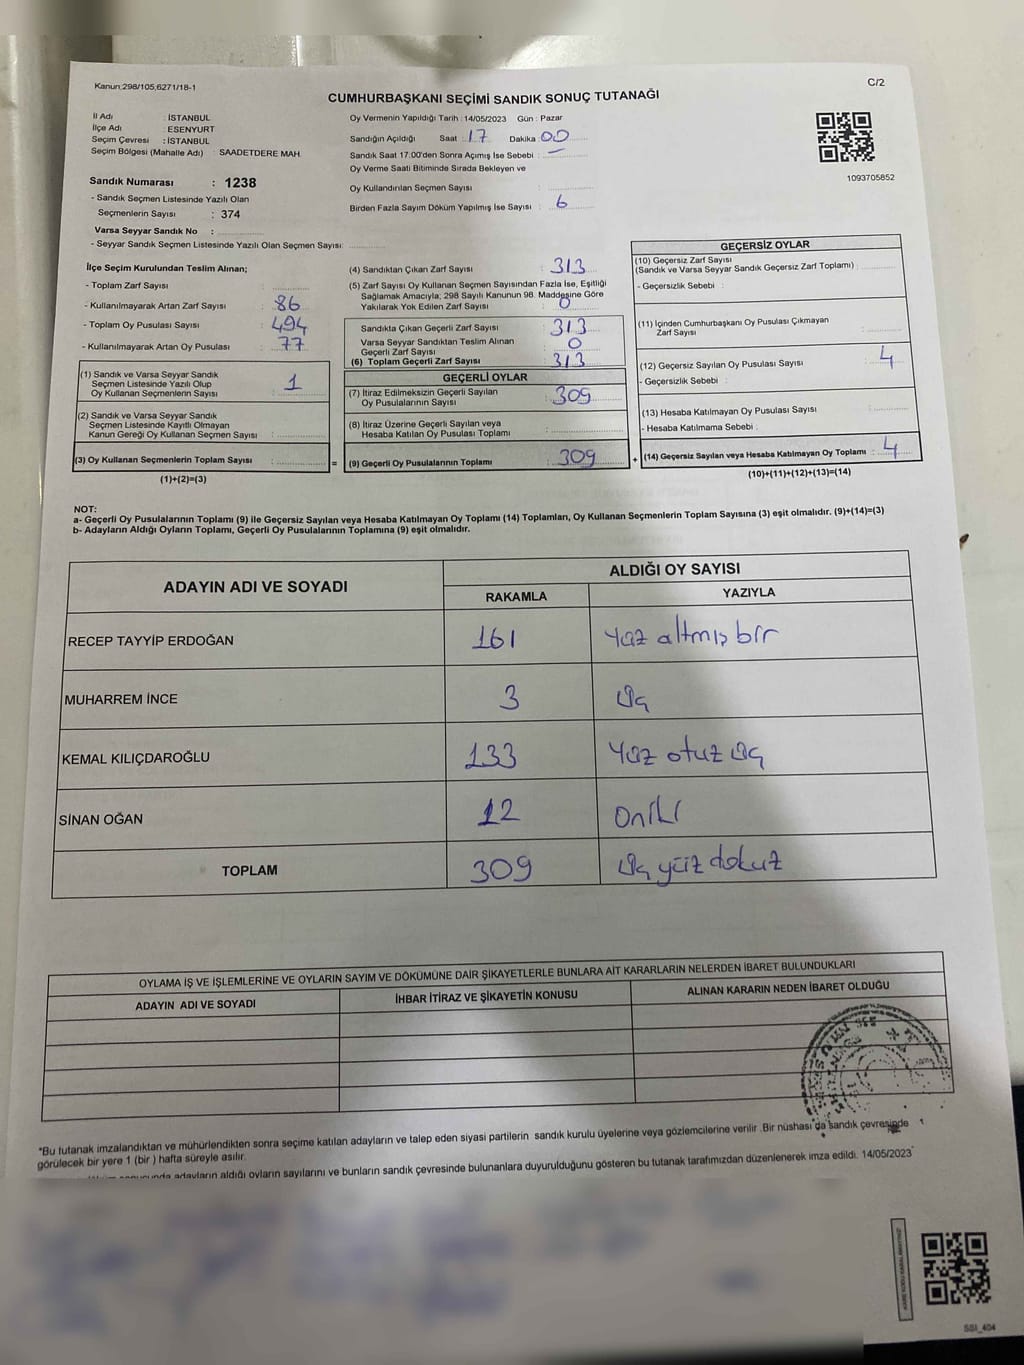 Kanun:298/105,6271/18-1
C/2
CUMHURBAŞKANI SEÇİMİ SANDIK SONUÇ TUTANAĞI
İl Adı : İSTANBUL
İlçe Adı : ESENYURT
Seçim Çevresi : İSTANBUL
Seçim Bölgesi (Mahalle Adı) : SAADETDERE MAH.
Sandık Numarası : 1238
- Sandık Seçmen Listesinde Yazılı Olan
Seçmenlerin Sayısı : 374
Varsa Seyyar Sandık No :
- Seyyar Sandık Seçmen Listesinde Yazılı Olan Seçmen Sayısı:
Oy Vermenin Yapıldığı Tarih : 14/05/2023 Gün : Pazar
Sandığın Açıldığı Saat : 17 Dakika : 00
Sandık Saat 17:00'den Sonra Açımış İse Sebebi : —
Oy Verme Saati Bitiminde Sırada Bekleyen ve
Oy Kullandırılan Seçmen Sayısı :
Birden Fazla Sayım Döküm Yapılmış İse Sayısı : 6
1093705852
İlçe Seçim Kurulundan Teslim Alınan;
- Toplam Zarf Sayısı :
- Kullanılmayarak Artan Zarf Sayısı : 86
- Toplam Oy Pusulası Sayısı : 494
- Kullanılmayarak Artan Oy Pusulası : 77
(1) Sandık ve Varsa Seyyar Sandık
Seçmen Listesinde Yazılı Olup
Oy Kullanan Seçmenlerin Sayısı : 1
(2) Sandık ve Varsa Seyyar Sandık
Seçmen Listesinde Kayıtlı Olmayan
Kanun Gereği Oy Kullanan Seçmen Sayısı :
(3) Oy Kullanan Seçmenlerin Toplam Sayısı : =
(1)+(2)=(3)
(4) Sandıktan Çıkan Zarf Sayısı : 313
(5) Zarf Sayısı Oy Kullanan Seçmen Sayısından Fazla İse, Eşitliği
Sağlamak Amacıyla; 298 Sayılı Kanunun 98. Maddesine Göre
Yakılarak Yok Edilen Zarf Sayısı : 0
Sandıkta Çıkan Geçerli Zarf Sayısı : 313
Varsa Seyyar Sandıktan Teslim Alınan
Geçerli Zarf Sayısı : 0
(6) Toplam Geçerli Zarf Sayısı : 313
GEÇERLİ OYLAR
(7) İtiraz Edilmeksizin Geçerli Sayılan
Oy Pusulalarının Sayısı : 309
(8) İtiraz Üzerine Geçerli Sayılan veya
Hesaba Katılan Oy Pusulası Toplamı :
(9) Geçerli Oy Pusulalarının Toplamı : 309 +
GEÇERSİZ OYLAR
(10) Geçersiz Zarf Sayısı
(Sandık ve Varsa Seyyar Sandık Geçersiz Zarf Toplamı) :
- Geçersizlik Sebebi :
(11) İçinden Cumhurbaşkanı Oy Pusulası Çıkmayan
Zarf Sayısı :
(12) Geçersiz Sayılan Oy Pusulası Sayısı : 4
- Geçersizlik Sebebi :
(13) Hesaba Katılmayan Oy Pusulası Sayısı :
- Hesaba Katılmama Sebebi :
(14) Geçersiz Sayılan veya Hesaba Katılmayan Oy Toplamı : 4
(10)+(11)+(12)+(13)=(14)
NOT:
a- Geçerli Oy Pusulalarının Toplamı (9) ile Geçersiz Sayılan veya Hesaba Katılmayan Oy Toplamı (14) Toplamları, Oy Kullanan Seçmenlerin Toplam Sayısına (3) eşit olmalıdır. (9)+(14)=(3)
b- Adayların Aldığı Oyların Toplamı, Geçerli Oy Pusulalarının Toplamına (9) eşit olmalıdır.
ADAYIN ADI VE SOYADI
ALDIĞI OY SAYISI
RAKAMLA YAZIYLA
RECEP TAYYİP ERDOĞAN 161 Yüz altmış bir
MUHARREM İNCE 3 Üç
KEMAL KILIÇDAROĞLU 133 Yüz otuz üç
SİNAN OĞAN 12 Oniki
TOPLAM 309 Üç yüz dokuz
OYLAMA İŞ VE İŞLEMLERİNE VE OYLARIN SAYIM VE DÖKÜMÜNE DAİR ŞİKAYETLERLE BUNLARA AİT KARARLARIN NELERDEN İBARET BULUNDUKLARI
ADAYIN ADI VE SOYADI İHBAR İTİRAZ VE ŞİKAYETİN KONUSU ALINAN KARARIN NEDEN İBARET OLDUĞU
*Bu tutanak imzalandıktan ve mühürlendikten sonra seçime katılan adayların ve talep eden siyasi partilerin sandık kurulu üyelerine veya gözlemcilerine verilir .Bir nüshası da sandık çevresinde
görülecek bir yere 1 (bir ) hafta süreyle asılır.
sonucunda adayların aldığı oyların sayılarını ve bunların sandık çevresinde bulunanlara duyurulduğunu gösteren bu tutanak tarafımızdan düzenlenerek imza edildi. 14/05/2023
SSI_404